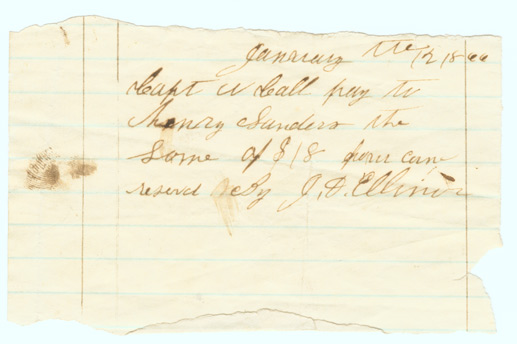 January the 12 1866
Capt W Call pay to
Henry Sanders the
Some of $18 for
reserd By J. D. Ellinor